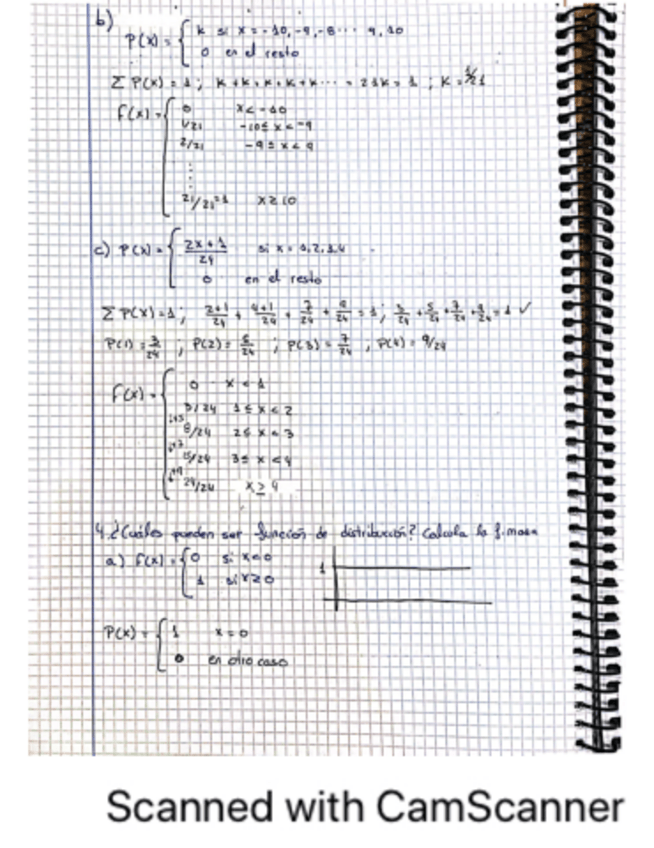 b)
P(x) = { k si x = -10, -9, -8 ... 9, 10
0 en el resto
Σ P(x) = 1 ; k + k + k + k + k ... = 21k = 1 ; k = 1/21
F(x) = { 0 x < -10
1/21 -10 ≤ x < -9
2/21 -9 ≤ x < 9
⋮
21/21 = 1 x ≥ 10
c) P(x) = { (2x+1)/24 si x = 1, 2, 3, 4
0 en el resto
Σ P(x) = 1 ; (2+1)/24 + (4+1)/24 + 7/24 + 9/24 = 1 ; 3/24 + 5/24 + 7/24 + 9/24 = 1 ✓
P(1) = 3/24 ; P(2) = 5/24 ; P(3) = 7/24 , P(4) = 9/24
F(x) = { 0 x < 1
3/24 1 ≤ x < 2
8/24 2 ≤ x < 3
15/24 3 ≤ x < 4
24/24 x ≥ 4
4. ¿Cuáles pueden ser función de distribución? Calcula la f. masa
a.) F(x) = { 0 si x < 0
1 si x ≥ 0
1
P(x) = { 1 x = 0
0 en otro caso
Scanned with CamScanner